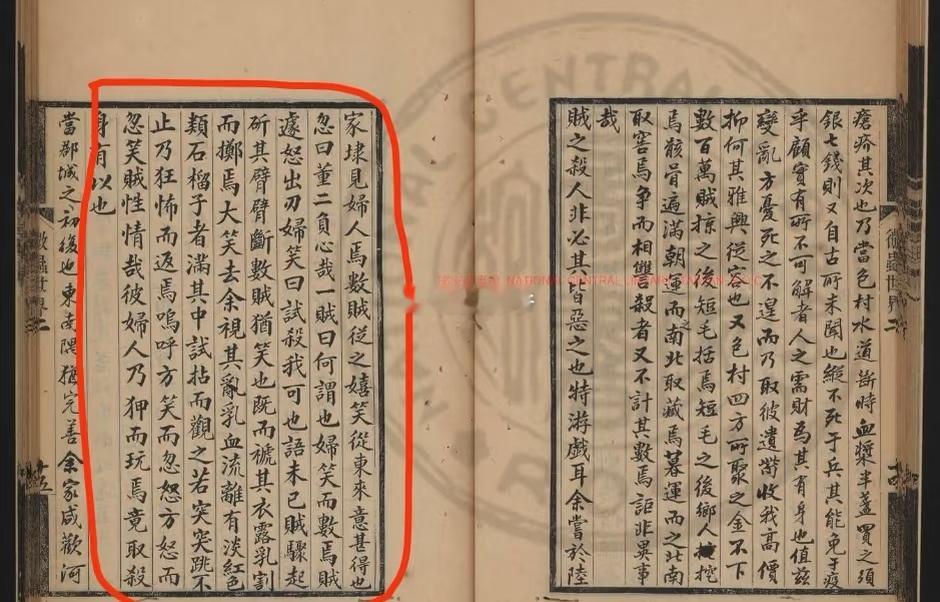 瘡疥其次也乃當色村水道斷時血漿半盞買之須
銀七錢則又自古所未聞也縱不死于兵其能免于疫
乎顧實有所不可解者人之需財為其有身也值兹
變亂方憂死之不遑而乃取彼遺棄收我高價
抑何其雅興從容也又色村四方所聚之金不下
數百萬賊掠之後短毛括焉短毛之後鄉人挖
焉骸骨遍滿朝運而南之北取藏焉暮運而之北南
取窖焉爭而相讐殺者又不計其數焉詎非異事
哉
賊之殺人非必其皆惡之也特游戲耳余嘗於陸
家埭見婦人焉數賊從之嬉笑從東來意甚得也
忽曰董二負心哉一賊曰何謂也婦笑而數焉賊
遽怒出刃婦笑曰試殺我可也語未已賊驟起
斫其臂臂斷數賊猶笑也既而褫其衣露乳割
而擲焉大笑去余視其亂乳血流離有淡紅色
類石榴子者滿其中試拈而觀之若突突跳不
止乃狂怖而返焉嗚呼方笑而忽怒方怒而
忽笑賊性情哉彼婦人乃狎而玩焉竟取殺
身有以也
當郡城之初復也東南隅猶完善余家咸歡河
微蟲世界
NATIONAL CENTRAL LIBRARY